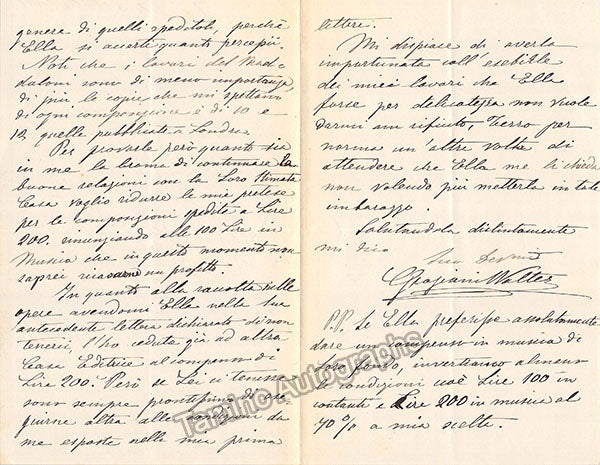 genere di quelli speditole, perchè
Ella si accerti quanto percepii.
Noti che i lavori del Mad-
daloni sono di meno importanza
di più le copie che mi spettano
di ogni composizione è di 10 e
12 quelle pubblicate a Londra.
Per provarle però quanto sia
in me la brama di continuare la
buone relazioni con la Loro Stimata
Casa voglio ridurre le mie pretese
per le composizioni spedite a Lire
200. rinunziando alle 100 Lire in
Musica che in questo momento non
saprei ricavarne un profitto.
In quanto alla raccolta delle
opere avendomi Ella nella sua
antecedente lettera dichiarato di non
tenerci l'ho ceduta già ad altra
Casa Editrice al compenso di
Lire 200. Però se Lei ci tenesse
sono sempre prontissimo di
giurne altra alle condizioni da
me esposte nella mia prima
lettera.
Mi dispiace di averla
importunata coll'esibirle
dei miei lavori che Ella
forse per delicatezza non vuole
darmi un rifiuto, terrò per
norma un'altra volta di
attendere che Ella me li chieda
non volendo più metterla in tale
imbarazzo.
Salutandola distintamente
mi dico
Suo Devmo
Graziani Walter
P.P. Se Ella preferisse assolutamente
dare un compenso in musica di
loro fondo, invertiamo almeno
le condizioni cioè Lire 100 in
contante e Lire 200 in musica al
70% a mia scelta.
Tamino Autographs